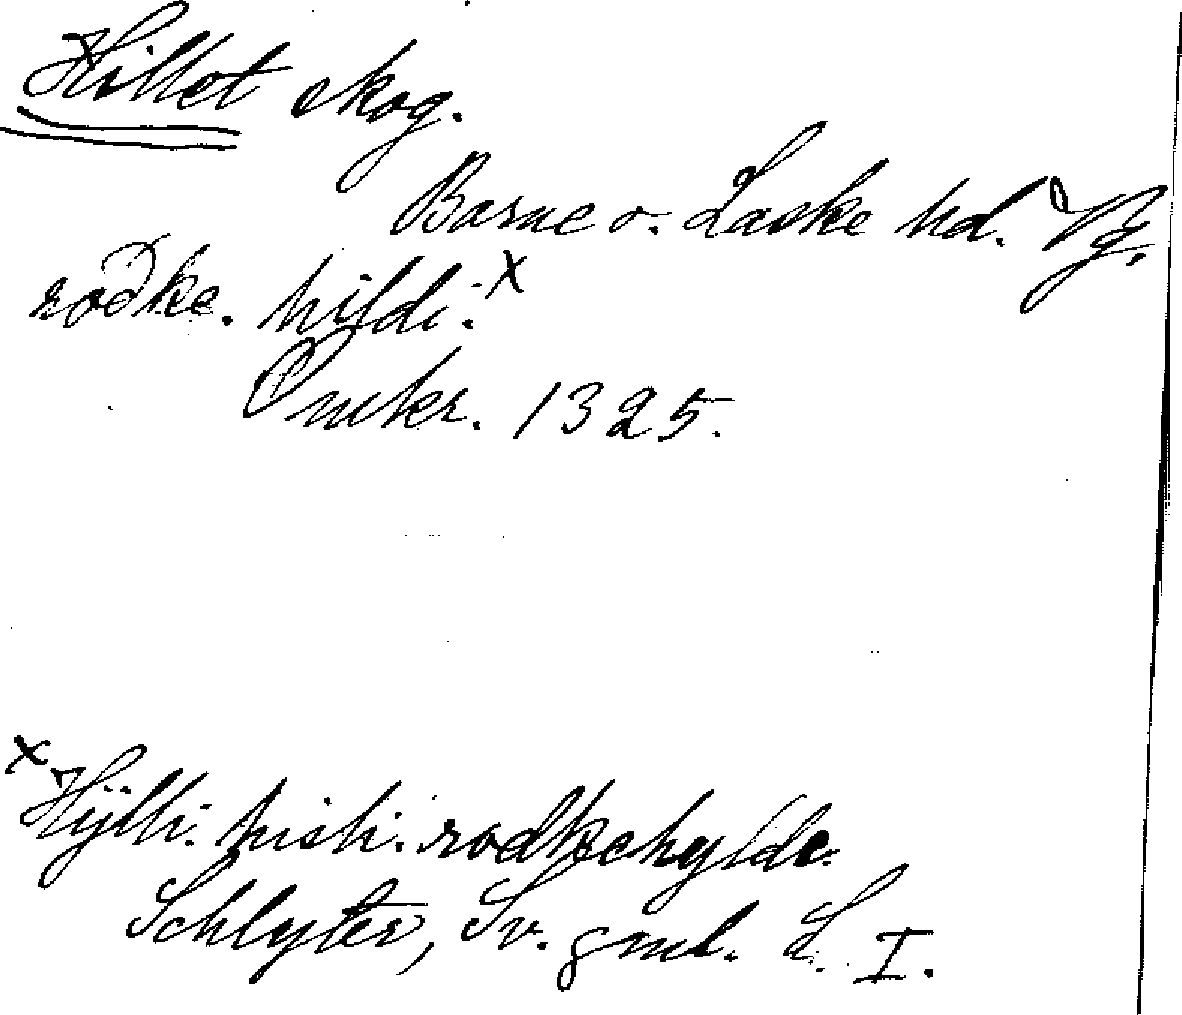 Hillet skog.
Barne o. Laske hd. Vg.
rodke. hildi. x
Omkr. 1325.
x Hÿlti. histi. rodkehylde.
Schlyter, Sv. gml. L. I.